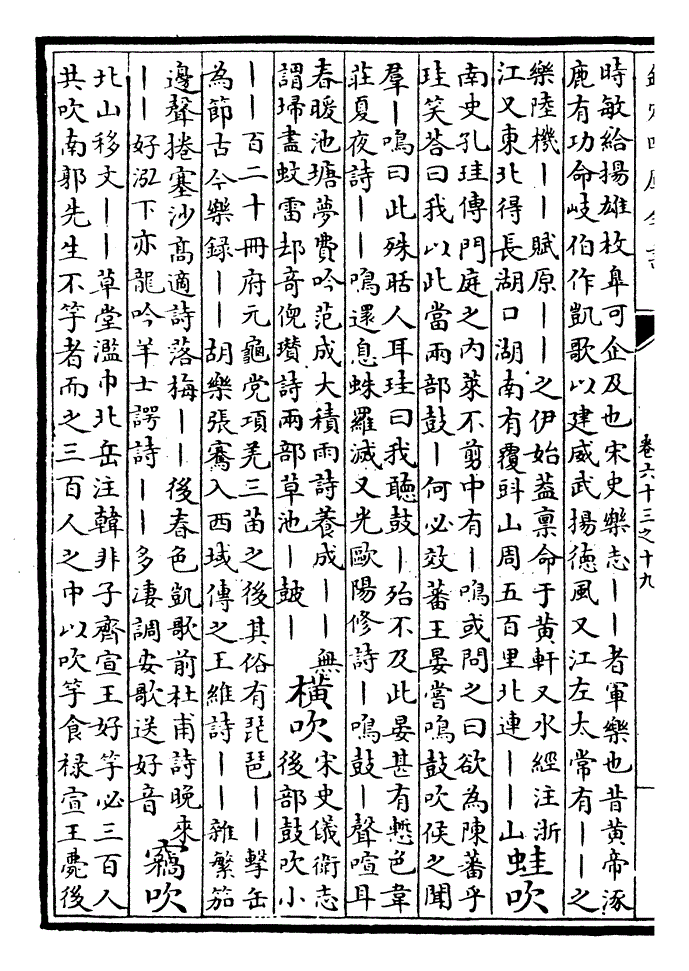 欽定四庫全書
卷六十三之十九
時敏給揚雄枚臯可企及也宋史樂志——者軍樂也昔黄帝涿
鹿有功命岐伯作凱歌以建威武揚德風又江左太常有——之
樂陸機——賦原——之伊始葢禀命于黄軒又水經注浙
江又東北得長湖口湖南有覆㪷山周五百里北連——山
蛙吹
南史孔珪傳門庭之内萊不剪中有—鳴或問之曰欲為陳蕃乎
珪笑荅曰我以此當兩部鼓—何必效蕃王晏嘗鳴鼓吹候之聞
羣—鳴曰此殊聒人耳珪曰我聽鼓—殆不及此晏甚有慙色韋
莊夏夜詩——鳴還息蛛羅滅又光歐陽修詩—鳴鼓—聲喧耳
春暖池塘夢費吟范成大積雨詩養成——無
謂埽盡蚊雷却奇倪瓚詩兩部草池—皷—
横吹
宋史儀衛志
後部鼓吹小
——百二十冊府元龜党項羌三苗之後其俗有琵琶——擊缶
為節古今樂録——胡樂張騫入西域傳之王維詩——雜繁笳
邊聲捲塞沙高適詩落梅——後春色凱歌前杜甫詩晩來
——好泓下亦龍吟羊士諤詩——多凄調安歌送好音
竊吹
北山移文——草堂濫巾北岳注韓非子齊宣王好竽必三百人
共吹南郭先生不竽者而之三百人之中以吹竽食禄宣王薨後